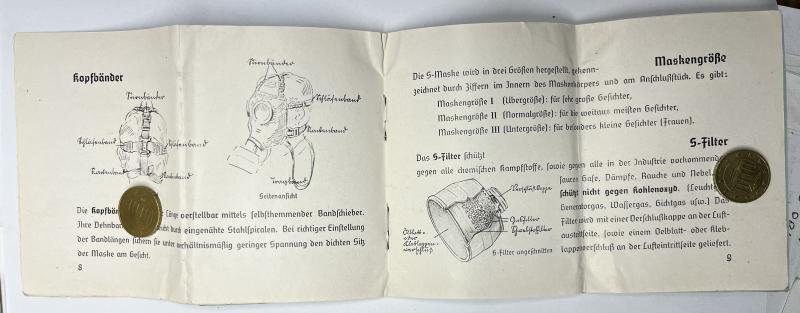 Kopfbänder
Stirnbänder
Schläfenband
Schläfenband
Nackenband
Nackenband
Stirnbänder
Schläfenband
Nackenband
Tragband
Seitenansicht
Die Kopfbänder Länge verstellbar mittels selbsthemmender Bandschieber.
Ihre Dehnbar durch eingenähte Stahlspiralen. Bei richtiger Einstellung
der Bandlängen sichern sie unter verhältnismäßig geringer Spannung den dichten Sitz
der Maske am Gesicht.
8
Maskengröße
Die S-Maske wird in drei Größen hergestellt, gekenn-
zeichnet durch Ziffern im Innern des Maskenkörpers und am Anschlußstück. Es gibt:
Maskengröße I (Übergröße): für sehr große Gesichter,
Maskengröße II (Normalgröße): für die weitaus meisten Gesichter,
Maskengröße III (Untergröße): für besonders kleine Gesichter (Frauen).
S-Filter
Das S-Filter schützt
gegen alle chemischen Kampfstoffe, sowie gegen alle in der Industrie vorkommenden
sauren Gase, Dämpfe, Rauche und Nebel.
schützt nicht gegen Kohlenoxyd. (Leucht
Generatorgas, Wassergas, Gichtgas usw.) Das
Filter wird mit einer Verschlußkappe an der Luft-
austrittseite, sowie einem Oelblatt- oder Kleb-
lappenverschluß an der Lufteintrittseite geliefert.
Verschlußkappe
Gasfilter
Schwebstoffilter
Ölblatt-
oder
Klebkappen-
verschluß
S-Filter angeschnitten
9